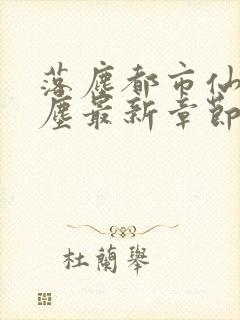 落塵都市仙
塵最新章節
杜蘭舉